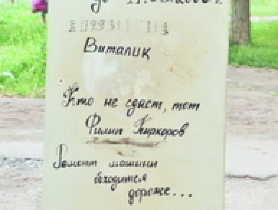 до
Виталик
Кто не сдаст, тот
Филип Киркоров
Ремонт машины
обходится
дороже...